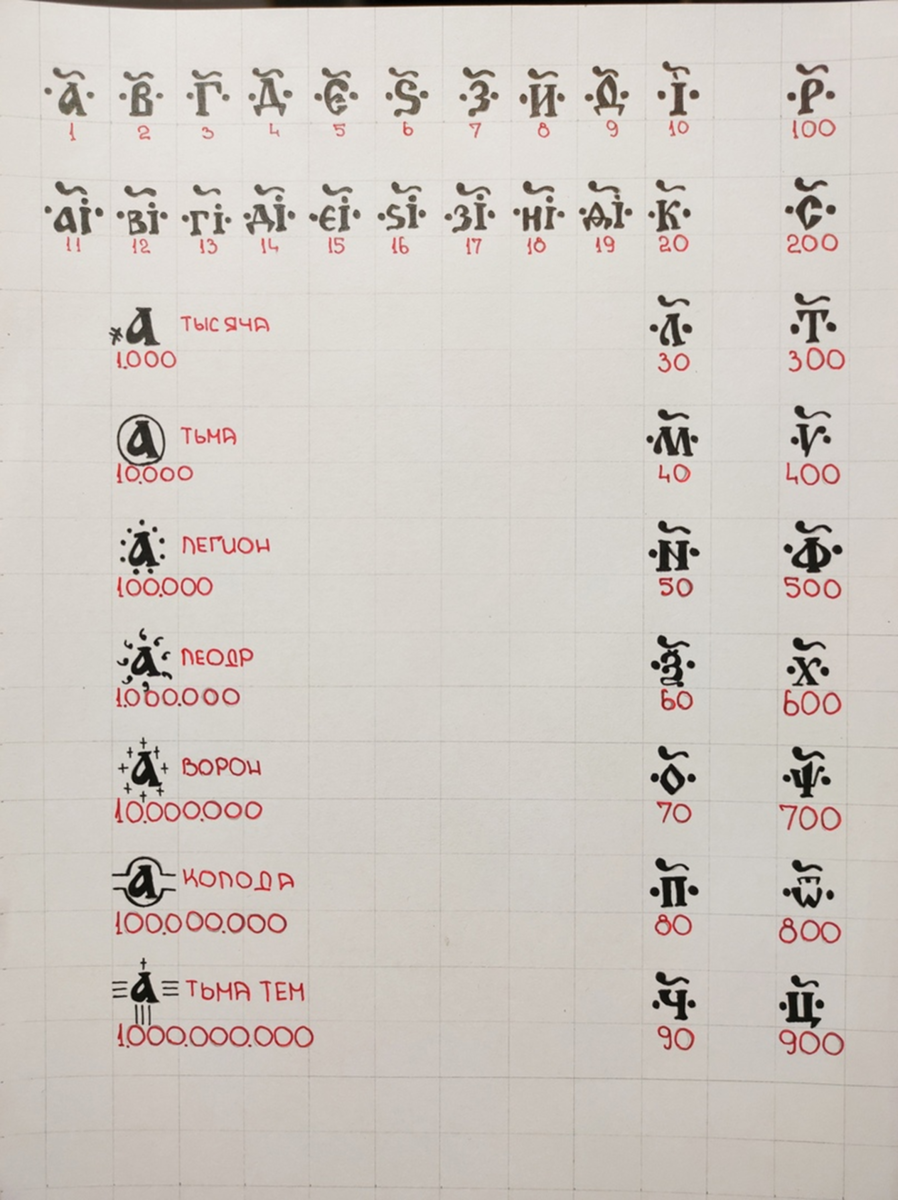 ·а҃· ·в҃· ·г҃· ·д҃· ·є҃· ·ѕ҃· ·з҃· ·и҃· ·ѳ҃· ·і҃· ·р҃·
1 2 3 4 5 6 7 8 9 10 100
·аі҃· ·ві҃· ·гі҃· ·ді҃· ·єі҃· ·ѕі҃· ·зі҃· ·ні҃· ·ді҃· ·к҃· ·с҃·
11 12 13 14 15 16 17 18 19 20 200
҂а ТЫСЯЧА ·л҃· ·т҃·
1.000 30 300
а⃝ ТЬМА ·м҃· ·ѵ҃·
10.000 40 400
а҈ ЛЕГИОН ·н҃· ·ф҃·
100.000 50 500
а҉ ЛЕОДР ·ѯ҃· ·х҃·
1.000.000 60 600
а꙰ ВОРОН ·о҃· ·ѱ҃·
10.000.000 70 700
а꙱ КОЛОДА ·п҃· ·ѿ҃·
100.000.000 80 800
а꙲ ТЬМА ТЕМ ·ч҃· ·ц҃·
1.000.000.000 90 900